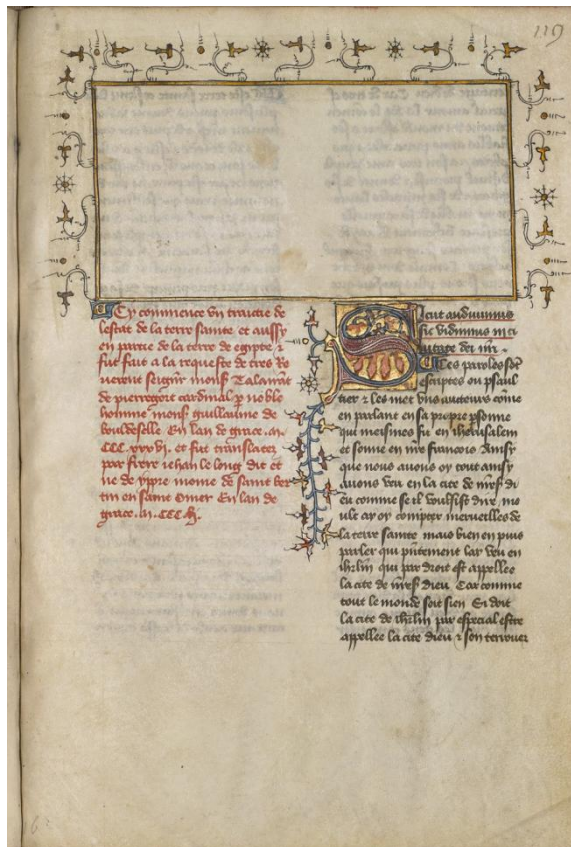 119
Cy commence un traictie de
lestat de la terre sainte et aussy
en partie de la terre de egypte &
fut fait a la requeste de tres Re
uerent seignr mons Talairāt
de pierregort cardinal p noble
homme mons guillaume de
bouldeselle En lan de grace .m.
CCC.xxxvi. et fut translatez
par frere iehan le long dit et
ne de yppre moine de saint ber
tin en saint omer En lan de
grace .m. CCC.
Sicut audiuimus
sic vidimus in ci
uitate dei nri .
Ces paroles sōt
escriptes ou psaul
tier & les met uns aucteurs cōme
en parlant en sa propre psonne
qui meismes fu en iherusalem
et sonne en nre francois Ainsy
que nous auons oy tout ainsy
auons veu en la cite de nres di
eu comme se il voulsist dire , mo
ult ay oy compter merueilles de
la terre sainte mais bien en puis
parler qui pntement lay veu en
ihrlm qui par droit est appellee
la cite de nres dieu Car comme
tout le monde soit sien Si doit
la cite de ihrlm par especial estre
appellee la cite dieu & son terrouer